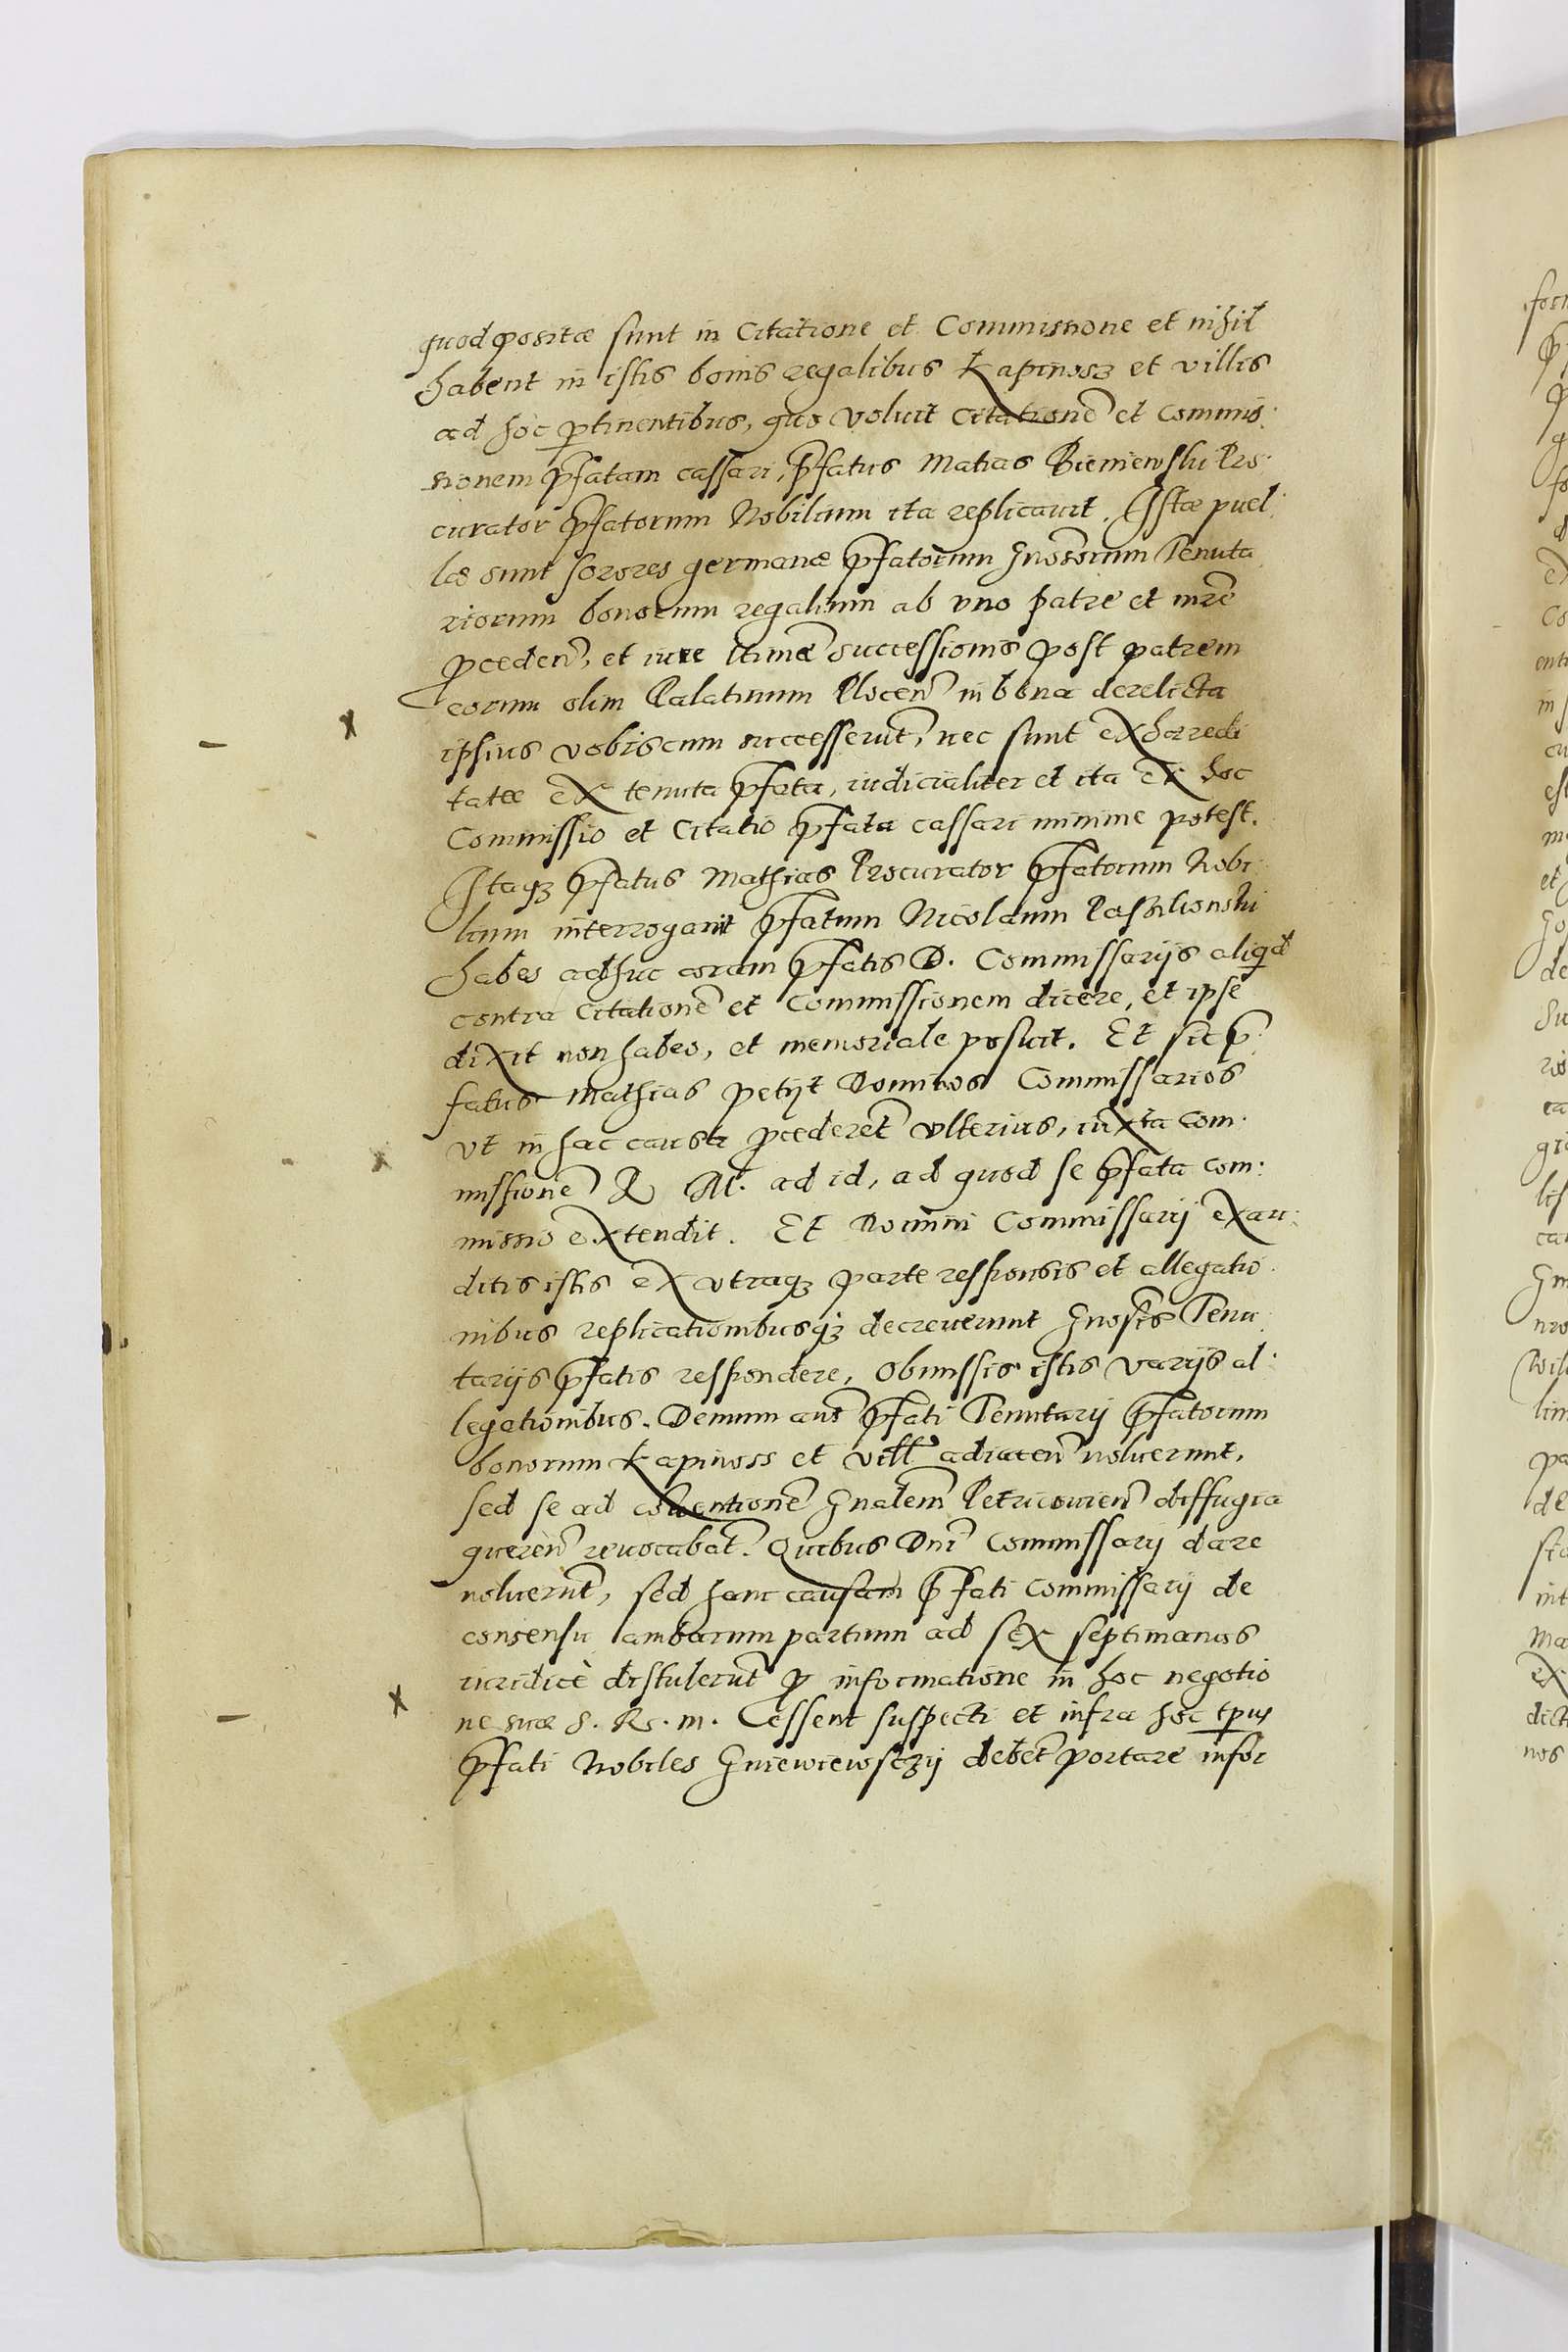 quod positæ sunt in Citatione et Commissione et nihil
habent in istis bonis regalibus Kapinosz et villis
ad hoc ptinentibus, quo voluit Citationē et commis:
sionem pfatam cassari, pfatus Matias Bieniewski Pro:
curator pfatorum Nobilium ita replicavit. Istæ puel:
læ sunt sorores germanæ pfatorum Gnosorum Tenuta
riorum bonorum regalium ab vno patre et mre
pceden, et iure ltimæ successionis post patrem
eorum olim Palatinum Plocen in bona derelicta
ipsius vobiscum successerut, nec sunt exhæredi
tatæ ex tenuta pfata, iudicialiter et ita ex hoc
Commissio et Citatio pfata cassari minime potest.
Itaqz pfatus Mathias Procurator pfatorum Nobi
lium interrogavit pfatum Nicolaum
habes adhuc coram pfatis D. Commissarijs aliqd
contra Citationē et Commissionem dicere, et ipse
dixit non habeo, et memoriale posuit. Et sic p:
fatus Mathias petijt Dominos Commissarios
vt in hac causa pcederet vlterius, iuxta com:
missionē R M. ad id, ad quod se pfata com:
missio extendit. Et Domini Commissarij exau:
ditis istis ex vtraqz parte responsis et allegatio:
nibus replicationibusqz decreverunt Gnosis Tenu
tarijs pfatis respondere, obmissis istis varijs al:
legationibus. Demum aut pfati Tenutarij pfatorum
bonorum Kapinoss et vill adiacen noluerunt,
sed se ad coventionē Gnalem Petricovien diffugia
queren revocabat. Quibus Dni Commissarij dare
noluerut, sed hanc causam pfati Commissarij de
consensu ambarum partium ad sex septimanas
iuridicè distulerut p informatione in hoc negotio
ne suæ S. R. m. essent suspecti et infra hoc tpus
pfati Nobiles Gniewiewsczij debet portare infor